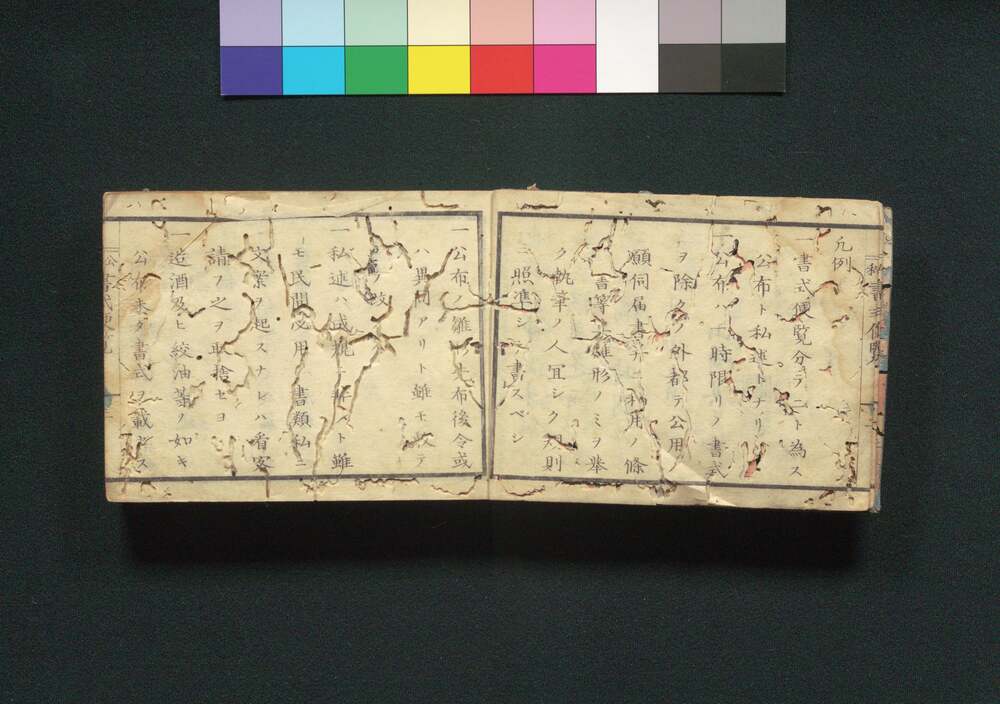 凡例
一書式便覧分テ二ト為ス
公布ト私連トナリ
一公布ハ一時限リノ書式
ヲ除クノ外都テ公用
願伺届書等ニ利用ノ條
書等雛形ノミヲ挙
ク執筆ノ人宜シク規則
ニ照準シ書スベシ
一公布ノ雛形先布後令或
ハ異同アリト雖モ
一私連ハ成規ニ非ベト雖
モ民間必用ノ書類私ニ
文案ヲ起スナレハ看客
請フ之ヲ取捨セヨ
一造酒及ヒ絞油等ノ如キ
公布未タ書式ヲ載セス